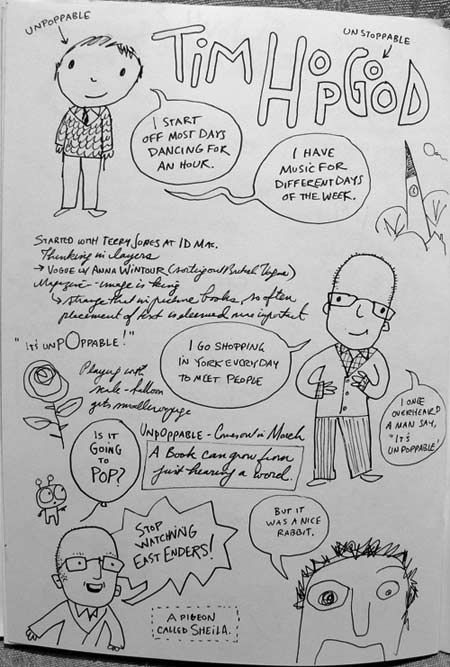 UNPOPPABLE
UNSTOPPABLE
TIM HOPGOOD
I START
OFF MOST DAYS
DANCING FOR
AN HOUR.
I HAVE
MUSIC FOR
DIFFERENT DAYS
OF THE WEEK.
STARTED WITH TERRY JONES AT ID MAG.
Thinking in layers
→ VOGUE W/ ANNA WINTOUR (sorting out British Vogue)
Magazine - image is king
↳ strange that in picture books, so often
placement of text is deemed more important
"IT'S UNPOPPABLE!"
Playing with
scale - balloon
gets smaller
I GO SHOPPING
IN YORK EVERY DAY
TO MEET PEOPLE
I ONCE
OVERHEARD
A MAN SAY,
"IT'S
UNPOPPABLE!"
IS IT
GOING
TO
POP?
UNPOPPABLE - Coming out in March
A Book can grow from
just hearing a word.
STOP
WATCHING
EAST ENDERS!
BUT IT
WAS A NICE
RABBIT.
A PIGEON
CALLED SHEILA.